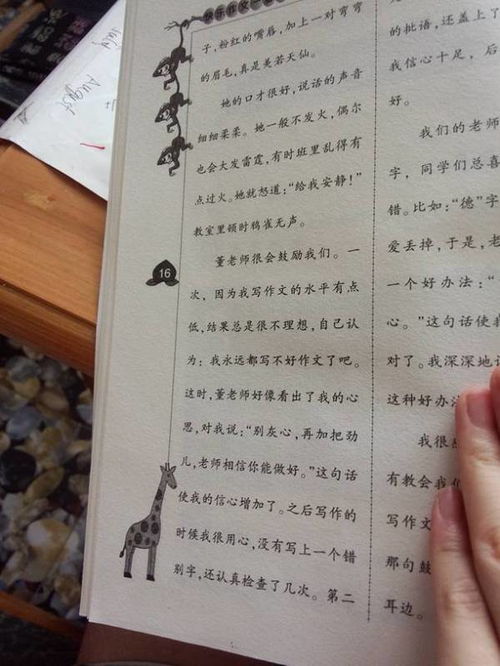 子，粉红的嘴唇，加上一对弯弯
的眉毛，真是美若天仙。
她的口才很好，说话的声音
细细柔柔。她一般不发火，偶尔
也会大发雷霆，有时班里乱得有
点过火。她就怒道：“给我安静！”
教室里顿时鸦雀无声。
董老师很会鼓励我们。一
次，因为我写作文的水平有点
低，结果总是很不理想，自己认
为：我永远都写不好作文了吧。
这时，董老师好像看出了我的心
思，对我说：“别灰心，再加把劲
儿，老师相信你能做好。”这句话
使我的信心增加了。之后写作的
时候我很用心，没有写上一个错
别字，还认真检查了几次。第二
16
的批语，还盖上了
我信心十足，后
好。
我们的老师
字，同学们总喜
错。比如：“德”字
爱丢掉，于是，老
一个好办法：“
心。”这句话使我
对了。我深深地
这种好办法
我很
有教会我们
写作文
那句鼓
耳边。
August